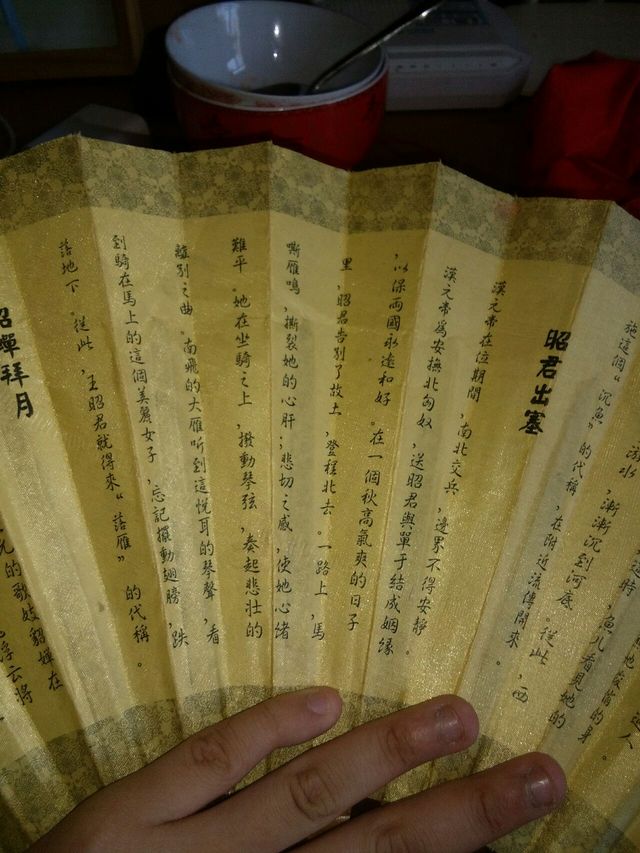 人
的身。
魚兒看見她的
水,漸漸沉到河底。從此,西
施這個“沉魚”的代稱,在附近流傳開來。
昭君出塞
漢元帝在位期間,南北交兵,邊界不得安靜。
漢元帝爲安撫北匈奴,送昭君與單于結成姻緣
,以保两國永遠和好。在一個秋高氣爽的日子
里,昭君告別了故土,登程北去。一路上,馬
嘶雁鳴,撕裂她的心肝;悲切之感,使她心绪
難平。她在坐騎之上,撥動琴弦,奏起悲壮的
離别之曲。南飛的大雁听到這悅耳的琴聲,看
到騎在馬上的這個美麗女子,忘記擺動翅膀,跌
落地下。從此,王昭君就得來“落雁”的代稱。
嬋拜月
的歌妓貂嬋在
浮云將